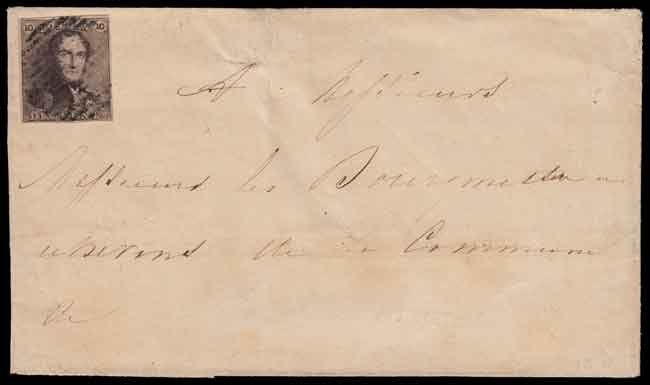 10 10
A Messieurs
Messieurs les Bourgmestre
echevins de la Commune
de